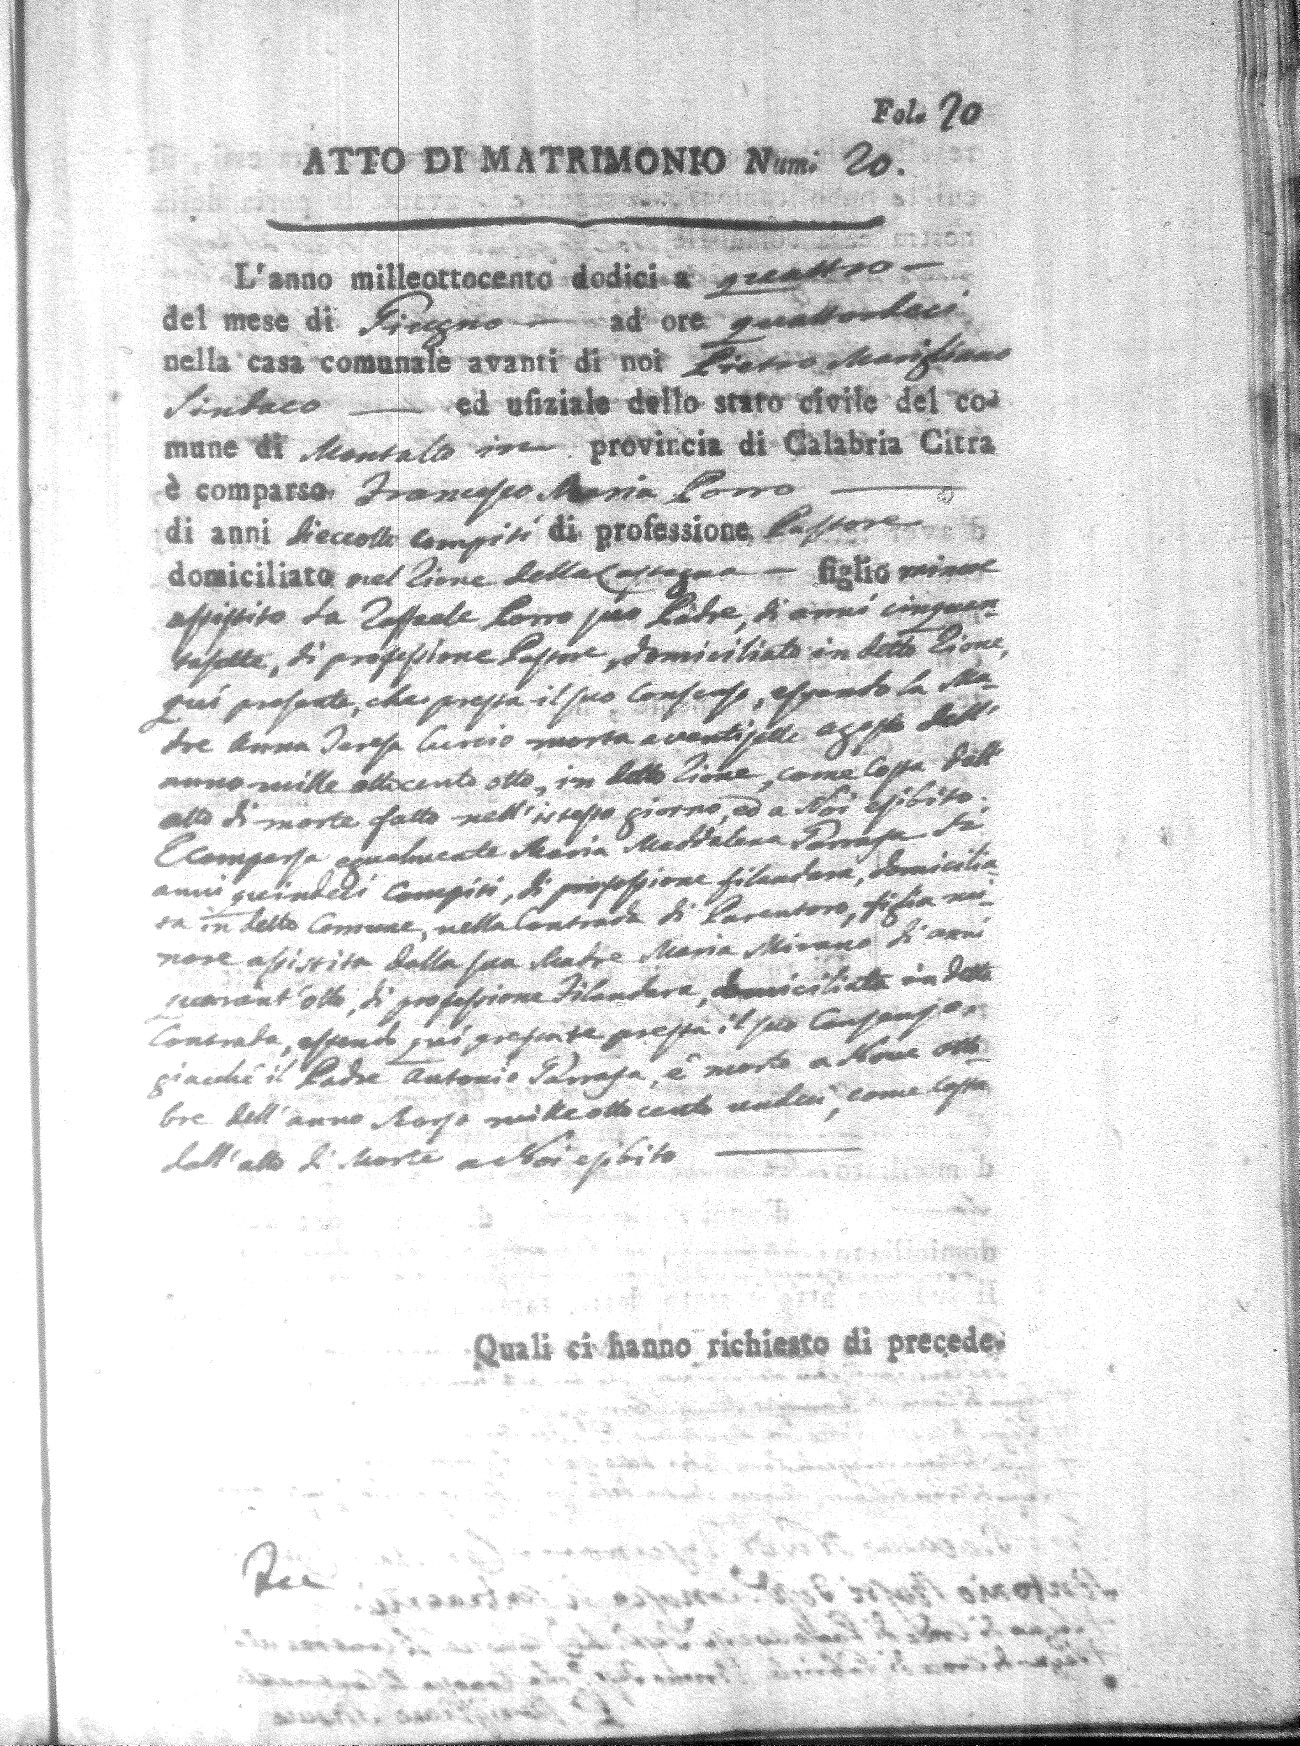 Fol. 20
ATTO DI MATRIMONIO Num. 20.
L'anno milleottocento dodici a quattro —
del mese di Giugno — ad ore quattordeci
nella casa comunale avanti di noi Pietro Marigliano
Sindaco — ed ufiziale dello stato civile del co-
mune di Montalto in provincia di Calabria Citra
è comparso Francesco Maria Porro —
di anni dieciotto compiti di professione Pastore
domiciliato nel Rione della Castagna — figlio minore
assistito da Raffaele Porro suo Padre, di anni cinquan-
tasette, di professione Pastore, domiciliato in detto Rione,
qui presente, che presta il suo Consenso, essendo la Ma-
dre Anna Teresa Curcio morta a ventisette agosto dell'
anno mille ottocento otto, in detto Rione, come costa dall'
atto di morte fatto nell'istesso giorno, ed a Noi esibito.
E comparsa egualmente Maria Maddalena Parrasa di
anni quindeci compiti, di professione filandara, domicilia-
ta in detto Comune, nella Contrada di Parantoro, figlia mi-
nore assistita dalla sua Madre Maria Mirano di anni
quarant'otto, di professione Filandara, domiciliata in detta
Contrada, essendo qui presente presta il suo Consenso
giacchè il Padre Antonio Parrasa, è morto a Nove otto-
bre dell'anno scorso mille ottocento undeci, come costa
dall'atto di Morte a Noi esibito —
Quali ci hanno richiesto di precede-